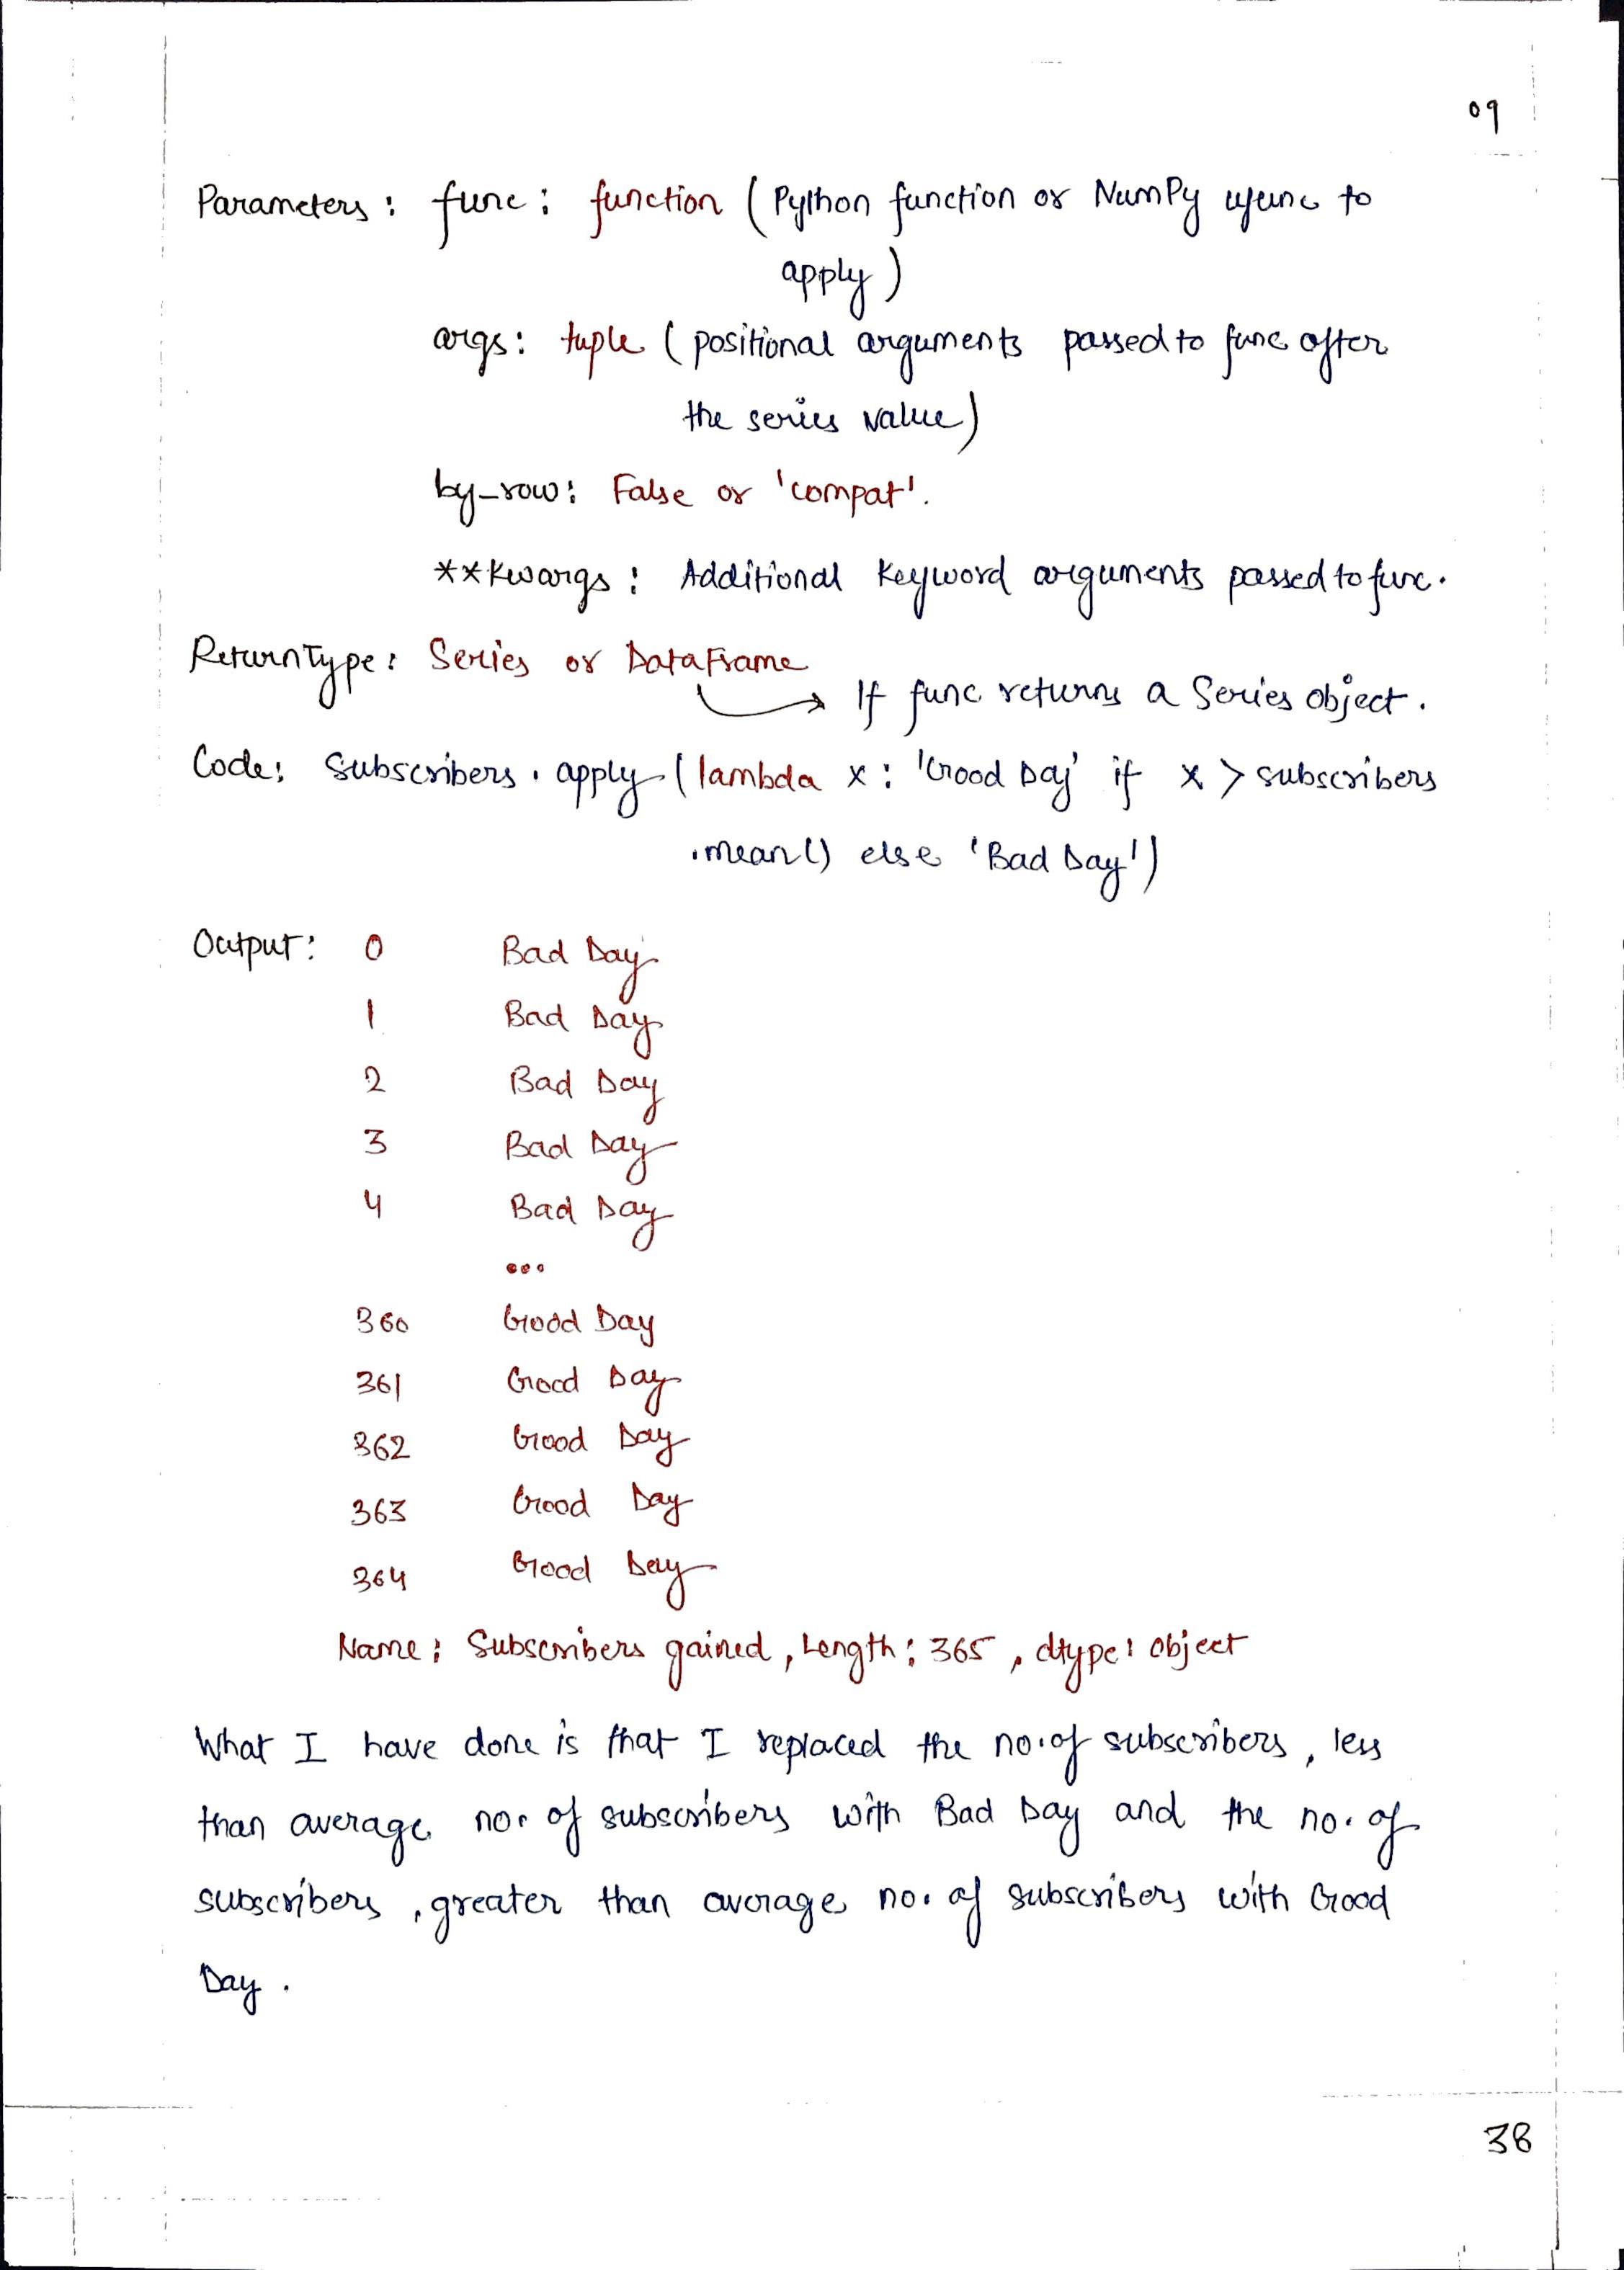 09
Parameters : func : function ( Python function or NumPy ufunc to
apply )
args : tuple ( positional arguments passed to func after
the series value )
by_row : False or 'compat'.
**kwargs : Additional keyword arguments passed to func.
Return Type : Series or DataFrame
If func returns a Series object.
Code : subscribers . apply ( lambda x : 'Good Day' if x > subscribers
.mean() else 'Bad Day' )
Output : 0 Bad Day
1 Bad Day
2 Bad Day
3 Bad Day
4 Bad Day
...
360 Good Day
361 Good Day
362 Good Day
363 Good Day
364 Good Day
Name : Subscribers gained , Length : 365 , dtype : object
What I have done is that I replaced the no. of subscribers , less
than average no. of subscribers with Bad Day and the no. of
subscribers , greater than average no. of subscribers with Good
Day .
38